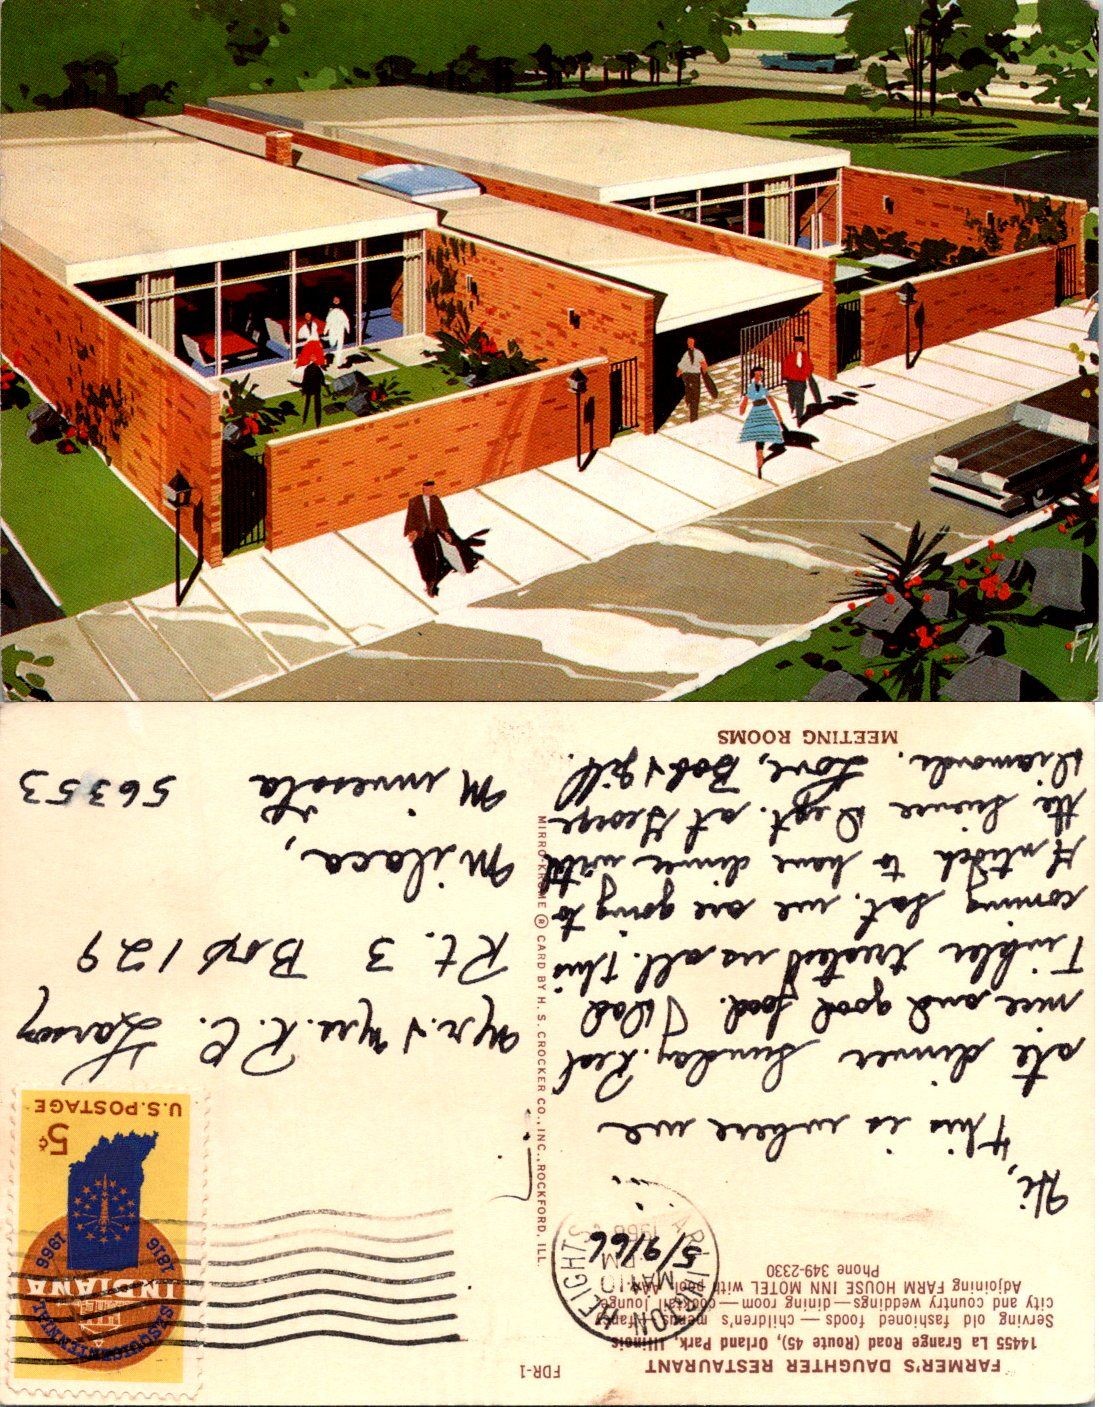 FW
FARMER'S DAUGHTER RESTAURANT
14455 La Grange Road (Route 45), Orland Park, Illinois
Serving old fashioned foods — children's menus
city and country weddings — dining room — cocktail lounge
Adjoining FARM HOUSE INN MOTEL with pool
Phone 349-2330
FDR-1
HEIGHTS
MAY 10
PM
1966
5/9/66
Hi,
This is where we
ate dinner Sunday. Real
nice and good food. Dad
Tinkler treated us all. This
coming Sat. we are going to
Antioch to have dinner with
the Science Dept. at George
Diamonds. Love, Bob & Jill.
MEETING ROOMS
MIRRO-KROME ® CARD BY H. S. CROCKER CO., INC., ROCKFORD, ILL.
SESQUICENTENNIAL
INDIANA
1816 1966
5¢
U.S. POSTAGE
Mr. & Mrs. R. C. Larson
Rt. 3 Box 129
Milaca,
Minnesota
56353